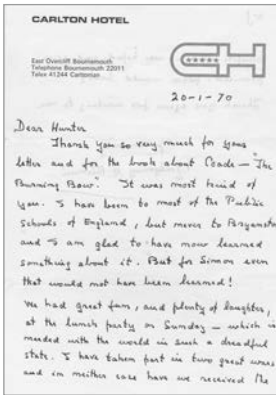 CARLTON HOTEL
East Overcliff Bournemouth
Telephone Bournemouth 22011
Telex 41244 Carltonian
20-1-70
Dear Hunter
Thank you so very much for your
letter and for the book about Coade — "The
Burning Bow". It was most kind of
you. I have been to most of the Public
Schools of England, but never to Bryanston
and I am glad to have now learned
something about it. But for Simon even
that would not have been learned!
We had great fun, and plenty of laughter,
at the lunch party on Sunday — which is
needed with the world in such a dreadful
state. I have taken part in two great wars
and in neither case have we received the